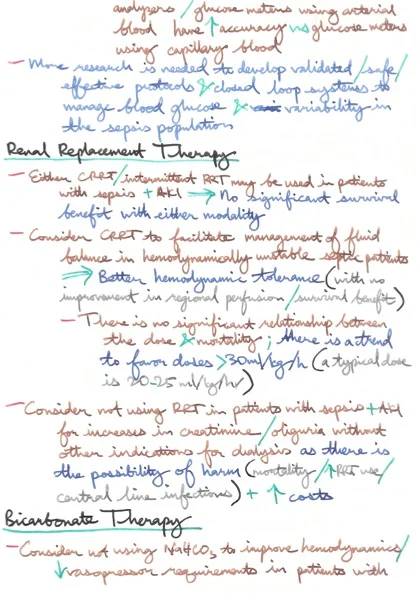 analyzers / glucose meters using arterial
blood have ↑ accuracy vs glucose meters
using capillary blood
- More research is needed to develop validated / safe /
effective protocols & closed loop systems to
manage blood glucose & variability in
the sepsis population
Renal Replacement Therapy
- Either CRRT / intermittent RRT may be used in patients
with sepsis + AKI ⇒ No significant survival
benefit with either modality
- Consider CRRT to facilitate management of fluid
balance in hemodynamically unstable septic patients
⇒ Better hemodynamic tolerance (with no
improvement in regional perfusion / survival benefit)
- There is no significant relationship between
the dose & mortality ; there is a trend
to favor doses >30ml/kg/h (a typical dose
is 20-25 ml/kg/hr)
- Consider not using RRT in patients with sepsis + AKI
for increases in creatinine / oliguria without
other indications for dialysis as there is
the possibility of harm (mortality / ↑ RRT use /
central line infections) + ↑ costs
Bicarbonate Therapy
- Consider not using NaHCO₃ to improve hemodynamics /
↓ vasopressor requirements in patients with